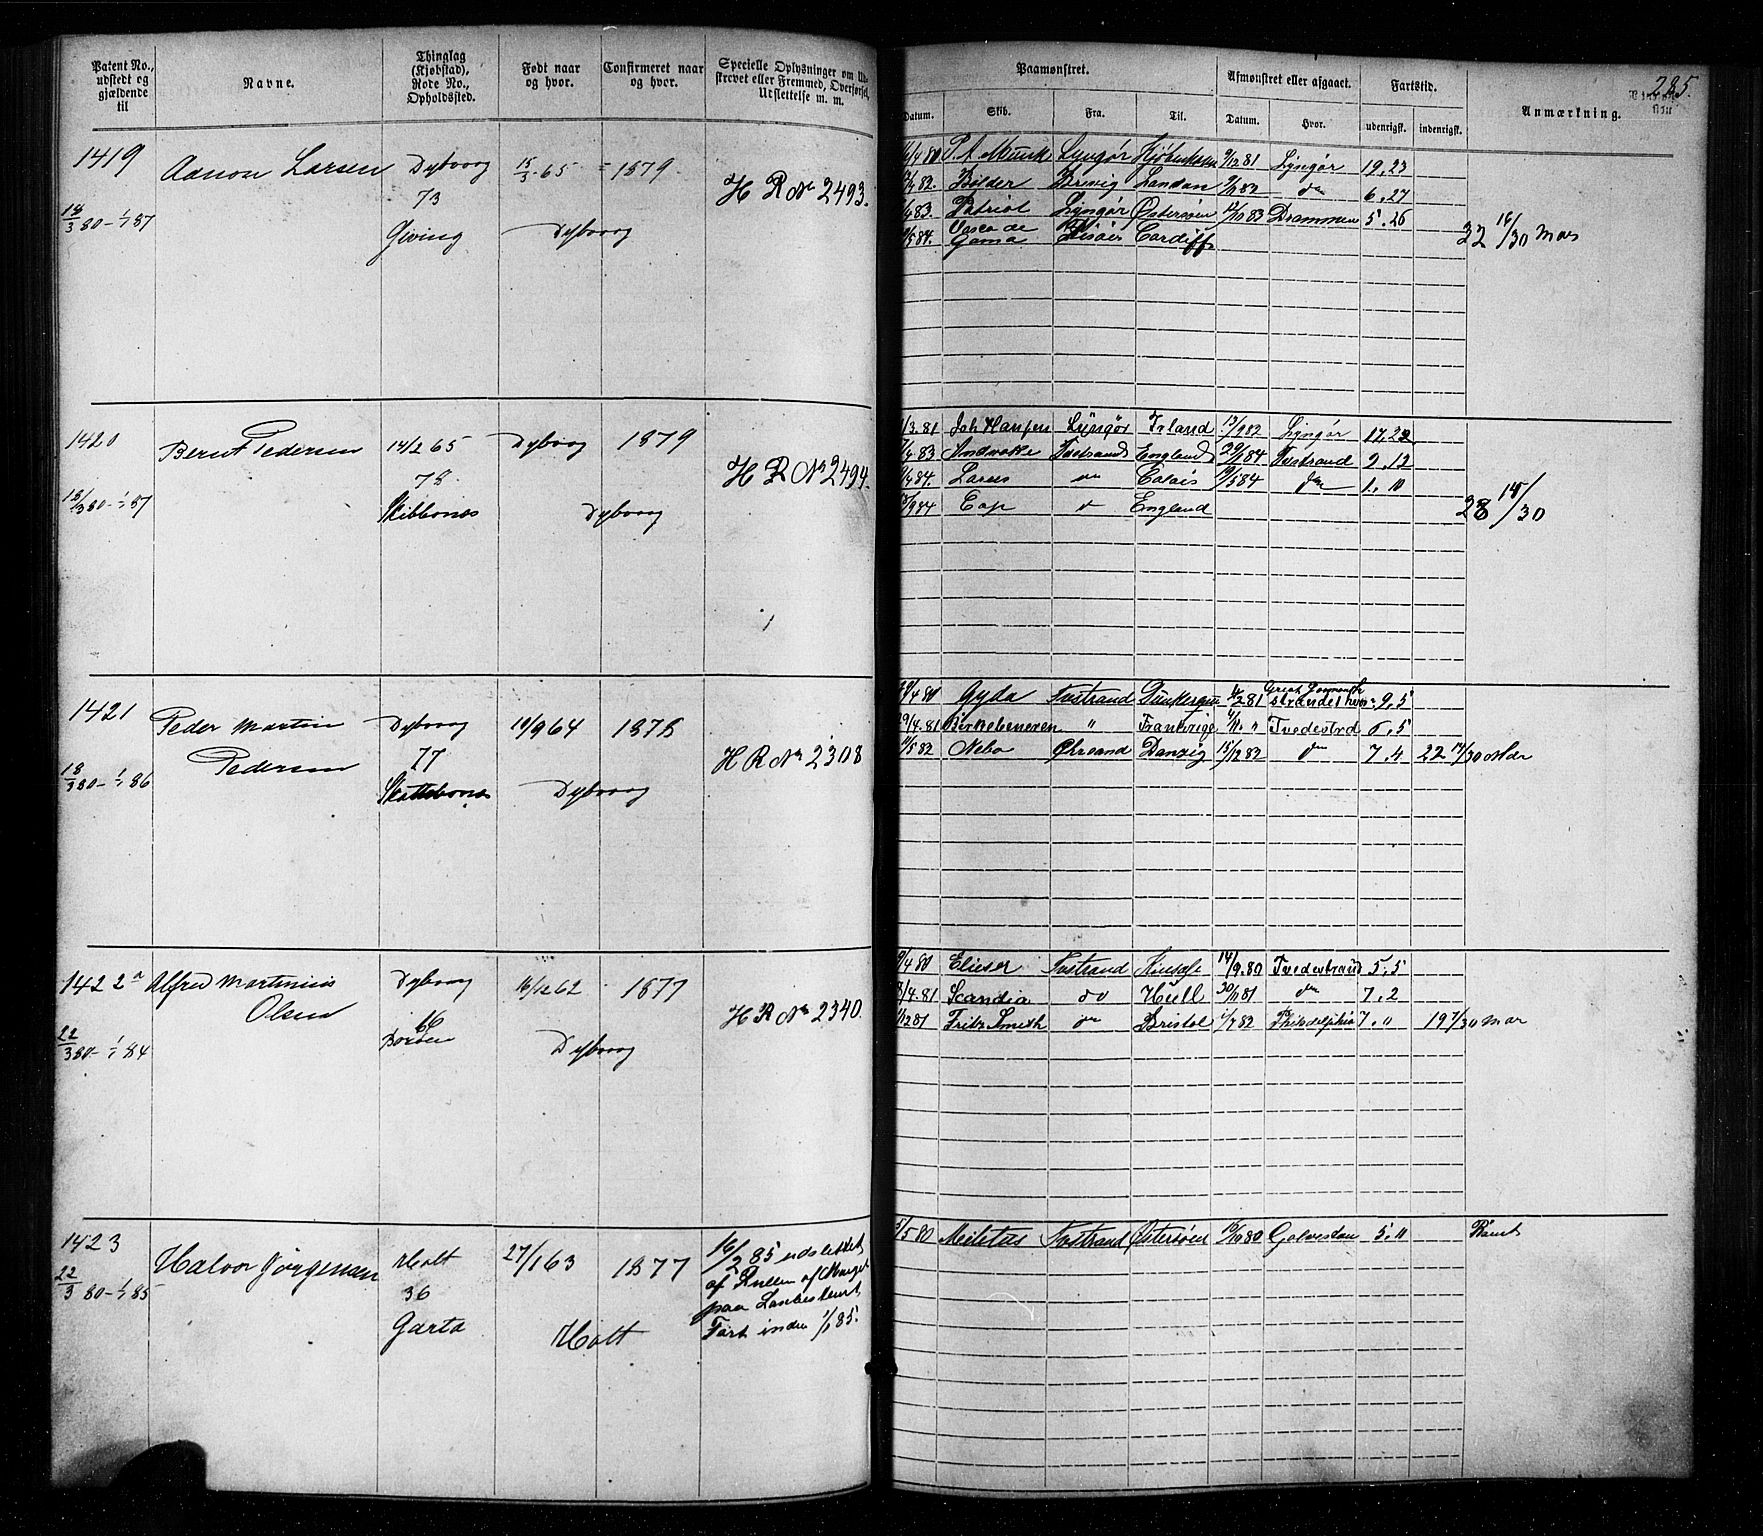 285.
Patent No., udstedt og gjældende til
Navne.
Thinglag (Kjøbstad), Rode No., Opholdssted.
Født naar og hvor.
Confirmeret naar og hvor.
Specielle Oplysninger om Udskrevet eller Fremmed, Overførsel, Udslettelse m. m.
Paamønstret.
Afmønstret eller afgaaet.
Fartstid.
Anmærkning.
Datum. Skib. Fra. Til. Datum. Hvor. udenrigsk. indenrigsk.
1419 Aanon Larsen Dybvaag 15/3 65 1879
73 H R No 2493.
18/3 80 – 1/1 87 Giving Dybvaag
/4 80 P. A. Munk Lyngør Kjøbenhavn 9/12 81 Lyngør 19.23
/4 82. Balder Brevig London do 6.27
/4 83. Patriot Lyngør Østersøen 12/10 83 Drammen 5.26
/5 84. Vasco de Gama Risøer Cardiff
32 16/30 Mdr
1420 Bernt Pedersen 14/2 65 Dybvaag 1879
78 H R No 2494.
18/3 80 – 1/1 87 Dybvaag
/3.81 Joh Hansen Lyngør Irland 13/9 82 Lyngør 17.22
/4 83 Andvake Tvestrand England 29/1 84 Tvestrand 2.12
/4 84. do Calais 19/5 84 do 1.10
/9 84 Cap do England
28 15/30
1421 Peder Martin Pedersen Dybvaag 10/9 64 1878
77 H R No 2308
18/3 80 – 1/1 86 Dybvaag
/4 80 Gyda Tvstrand Dunkerque /2 81 Great Yarmouth 9,5
29/4.81 Birkebeneren " Frankrige Tvedestrd 6,5
/5 82 Nebo Chrsand Danzig 15/12 82 do 7.4 22 14/30 Mdr
1422 a Alfred Martinius Olsen Dybvaag 16/12 62 1877
66 H R No 2340
22/3 80 – 1/1 84 Dybvaag
/4 80 Elieser Tvstrand 14/9.80 Tvedestrand 5,5
/4.81 Scandia do Hull 30/11 81 do 7.2
/12 81 Fritz Smith do Bristol 1/7 82 Philadelphia 7." 19 7/30 Mdr
1423 Halvor Jørgensen Holt 27/1 63 1877
36
22/3 80 – 1/1 85 Garta Holt
16/2 85 udslettet
af Rullen af Mangel
paa Landesteds
Fart inden 1/1 85.
/5 80 Tvstrand Østersøen 16/10 80 Galveston 5,11 Rømt